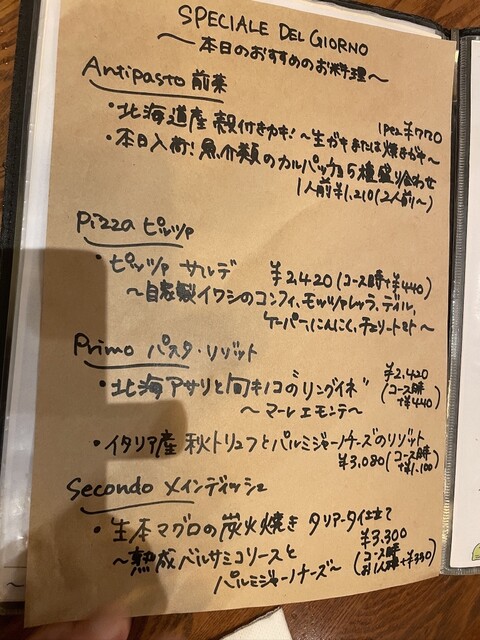 SPECIALE DEL GIORNO
〜本日のおすすめのお料理〜
Antipasto 前菜
・北海道産 殻付きカキ！〜生ガキまたは焼きガキ〜 1pez ¥770
・本日入荷！魚介類のカルパッチョ5種盛り合わせ
1人前¥1,210(2人前〜)
Pizza ピッツァ
・ピッツァ サルデ ¥2,420(コース時+¥440)
〜自家製イワシのコンフィ、モッツァレッラ、ディル、
ケーパー、にんにく、チェリートマト〜
Primo パスタ・リゾット
・北海アサリと旬キノコの"リングイネ" ¥2,420
〜マーレ エ モンテ〜 (コース時+¥440)
・イタリア産 秋トリュフとパルミジャーノチーズのリゾット
¥3,080(コース時+¥1,100)
Secondo メインディッシュ
・生本マグロの炭火焼き タリアータ仕立て
¥3,300
〜熟成バルサミコソースと (コース時お1人様+¥330)
パルミジャーノチーズ〜